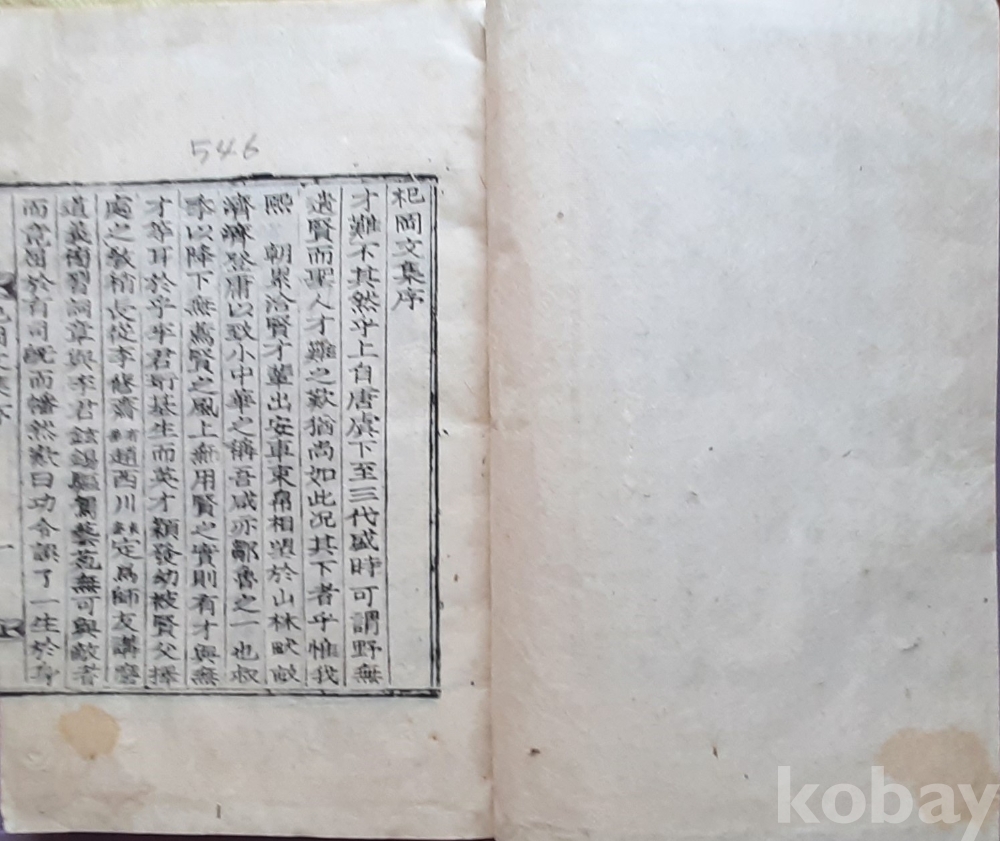 546
杞岡文集序
才難不其然乎上自唐虞下至三代盛時可謂野無
遺賢而聖人才難之歎猶尚如此況其下者乎惟我
熙朝累洽賢才輩出安車東帛相望於山林畎畝
濟濟登庸以致小中華之稱吾咸亦鄒魯之一也叔
季以降下無薦賢之風上無用賢之實則有才與無
才等耳於乎平君 基生而英才穎發幼被賢父擇
處之教稍長從李 齋 趙西川 定爲師友講磨
道義 習詞章與李君 鎭驅駕藝苑無可與敵者
而竟 於有司旣而幡然歎曰功令誤了一生於
1
kobay